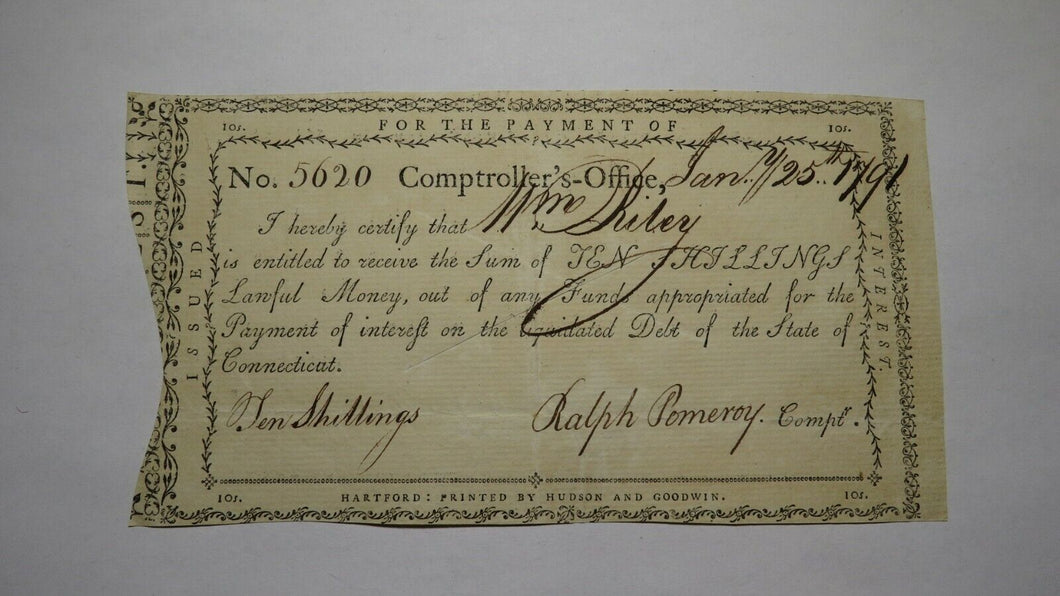 10s. FOR THE PAYMENT OF 10s.
No. 5620 Comptroller's-Office, Jan.y 25.th 1791
I hereby certify that Wm Riley
is entitled to receive the Sum of TEN SHILLINGS
Lawful Money, out of any Funds appropriated for the
Payment of interest on the liquidated Debt of the State of
Connecticut.
Ten Shillings Ralph Pomeroy. Comptr.
10s. HARTFORD: PRINTED BY HUDSON AND GOODWIN. 10s.
ISSUED
INTEREST.